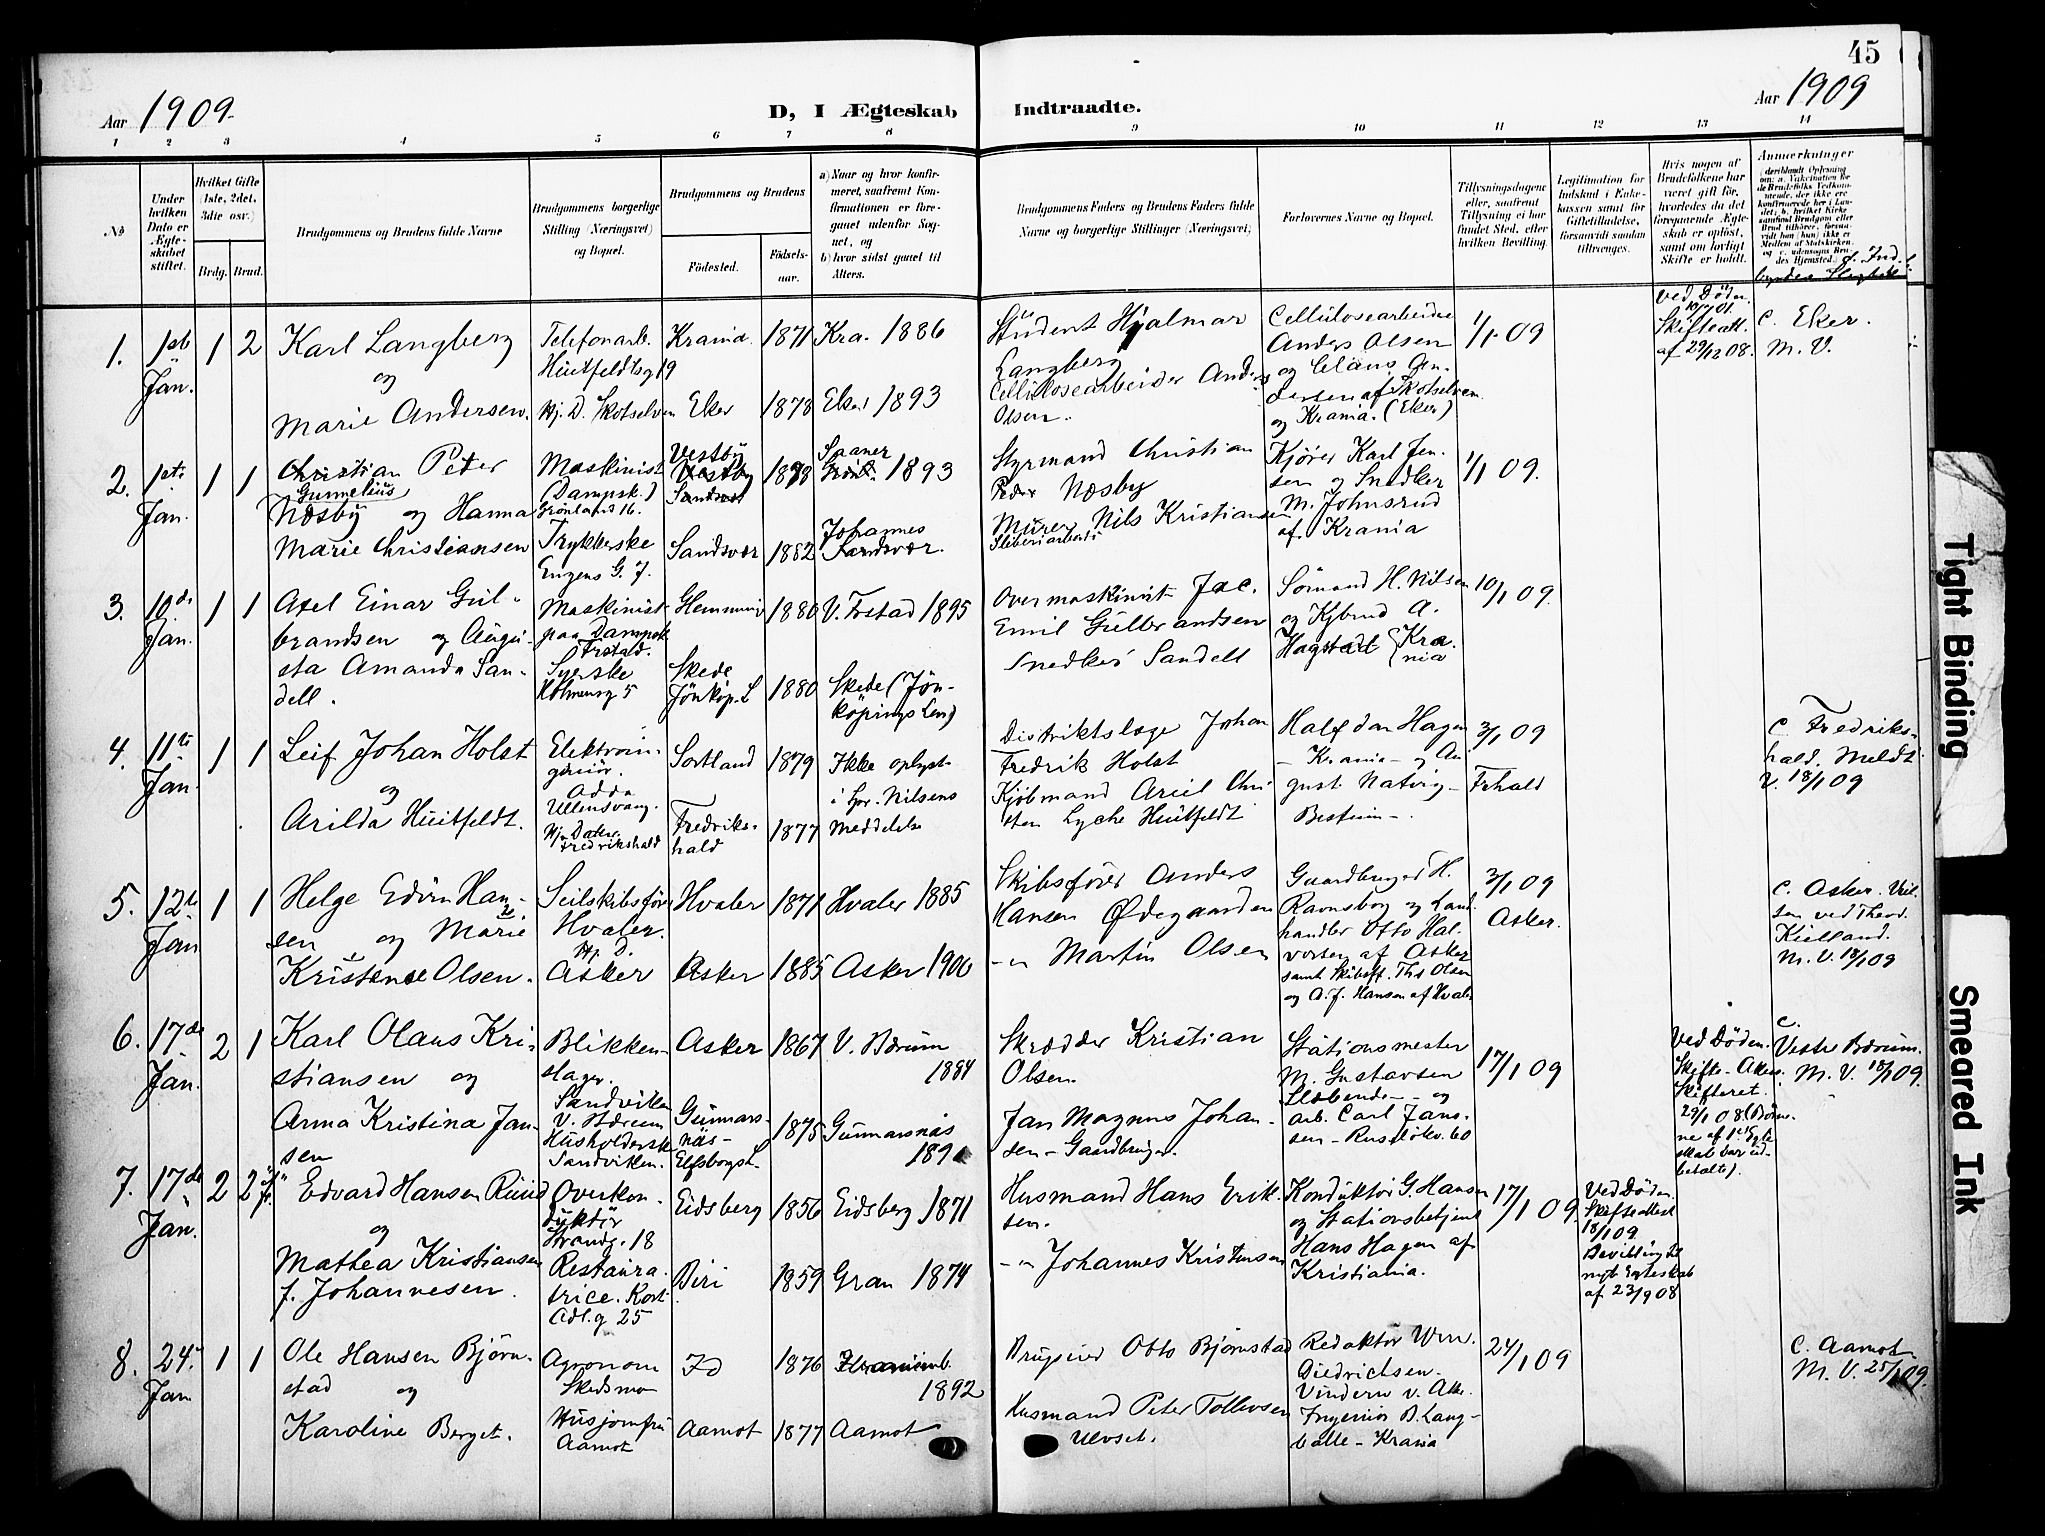 45
Aar 1909.
D, I Ægteskab Indtraadte.
Aar 1909
1 2 3 4 5 6 7 8 9 10 11 12 13 14
No
Under hvilken Dato er Ægteskabet stiftet.
Hvilket Gifte (1ste, 2det, 3die osv.)
Brdg. Brud.
Brudgommens og Brudens fulde Navne
Brudgommens borgerlige Stilling (Næringsvei) og Bopæl.
Brudgommens og Brudens
Fødested.
Fødselsaar.
a) Naar og hvor konfirmeret, saafremt Konfirmationen er foregaaet udenfor Sognet, og
b) hvor sidst gaaet til Alters.
Brudgommens Faders og Brudens Faders fulde Navne og borgerlige Stillinger (Næringsvei)
Forlovernes Navne og Bopæl.
Tillysningsdagene eller, saafremt Tillysning ei har fundet Sted, efter hvilken Bevilling.
Legitimation for Indskud i Enkekassen samt for Giftetilladelse, forsaavidt saadan tiltrænges.
Hvis nogen af Brudefolkene har været gift før, hvorledes da det foregaaende Ægteskab er opløst, samt om lovligt Skifte er holdt.
Anmerkninger
1. 1ste Jan. 1 2
Karl Langberg
og
Marie Andersen.
Telefonarb.
Huitfeldtsg 19
Hj. D. Skotselven
Krania. 1871 Kra. 1886
Eker 1878 Eker 1893
Student Hjalmar
Langberg
Cellulosearbeider Anders
Olsen.
Cellulosearbeider
Anders Olsen
og Claus An-
dersen af Skotselven
og Krania. (Eker)
1/1 09
Ved Døden
10/7 01.
Skifteatt.
af 29/12 08.
C. Eker.
M. V.
2. 1ste Jan. 1 1
Christian Peter
Gunnelius
Næsby og Hanna
Marie Christiansen
Maskinist
(Dampsk.)
Grønlands 16.
Trykkerske
Engens G. 7.
Vestby
1878
1893
Sandsvær 1882
Johannes
Sandsvær.
Styrmand Christian
Peder Næsby
Murer Nils Kristiansen
Sliberiarbeider
Kjører Karl Jen-
sen og Snedker
M. Johnsrud
af Krania
1/1 09.
3. 10de Jan. 1 1
Axel Einar Gul-
brandsen og Augu-
sta Amanda San-
dell.
Maskinist
paa Dampsk
Frstad.
Syerske
Holmensg 5
Glemminge 1880 V. Frstad 1895
Skede
Jönköp. L 1880
Skede (Jön-
köpings Len)
Overmaskinist Jac.
Emil Gulbrandsen
Snedker Sandell
Sømand H. Nilsen
og Kjbmd A.
Hagstadt (Kra-
nia
10/1 09.
4. 11te Jan. 1 1
Leif Johan Holst
og
Arilda Huitfeldt.
Elektroin-
geniør.
Odda
Ullensvang.
Hj. Datter
Fredrikshald
Sortland 1879
Ikke oplyst
i hr. Nilsens
meddelelse
Fredriks-
hald 1877
Distriktslæge Johan
Fredrik Holst
Kjøbmand Arild Chri-
sten Lyche Huitfeldt
Halfdan Hagen
- Krania - og Au-
gust Natvig -
Bestum -.
3/1 09
Frhald
C. Fredriks-
hald. Meldt
V. 18/1 09
5. 12te Jan 1 1
Helge Edvin Han-
sen og Marie
Kristense Olsen.
Seilskibsfør
Hvaler.
Hj. D.
Asker
Hvaler 1871 Hvaler 1885
Asker 1885 Asker 1900
Skibsfører Anders
Hansen Ødegaarden
- " Martin Olsen
Gaardbruger H.
Ravnsborg og Land-
handler Otto Hal-
vorsen af Asker
samt Skibsf. Ths Olsen
og A. J. Hansen af Hvaler
3/1 09
Asker.
C. Asker. Viel-
sen ved Theod.
Kielland.
M. V. 18/1 09
6. 17de Jan. 2 1
Karl Olaus Kri-
stiansen og
Anna Kristina Jan-
sen
Blikken-
slager.
Sandviken
V. Bærum
Husholderske
Sandviken.
Asker 1867 V. Bærum
1884
Gunnars-
näs -
Elfsborgs L. 1875 Gunnarsnäs
Skrædder Kristian
Olsen.
Jan Magnus Johan-
sen - Gaardbruger.
Stationsmester
M. Gustavsen
Slæbende - og
arb. Carl Jans-
sen - Rusløkv. 60
17/1 09
Ved Døden.
Skifte - Akers
Skifteret.
29/1 08 (Børne-
ne af 1ste Egte-
skab var ud-
betalte).
C.
Vestre Bærum.
M. V. 18/1 09.
7. 17de Jan. 2 2
Edvard Hansen Ruud
og
Mathea Kristiansen
f. Johannesen.
Overkon-
duktør
Strandg. 18
Restaura-
trice. Kort
Adl.g 25
Eidsberg 1856 Eidsberg 1871
Biri 1859 Gran 1874
Husmand Hans Erik-
sen.
- " Johannes Kristensen
Konduktør G. Hansen
og Stationsbetjent
Hans Hagen af
Kristiania.
17/1 09.
Ved Døden.
Skifteattest
18/1 09.
Bevilling til
nyt Egteskab
af 23/9 08
8. 24. Jan 1 1
Ole Hansen Bjørn-
stad og
Karoline Berget.
Agronom
Skedsmo
Husjomfru
Aamot
Id 1876
1892
Aamot 1877 Aamot
Brugseier Otto Bjørnstad
Husmand Peter Tollevsen
Ulvset.
Redaktør Wm.
Diedrichsen.
Vindern v. Aker.
Ingeniør B. Lang-
balle - Krania
24/1 09
C. Aamot
M. V. 25/1 09.
Tight Binding
Smeared Ink